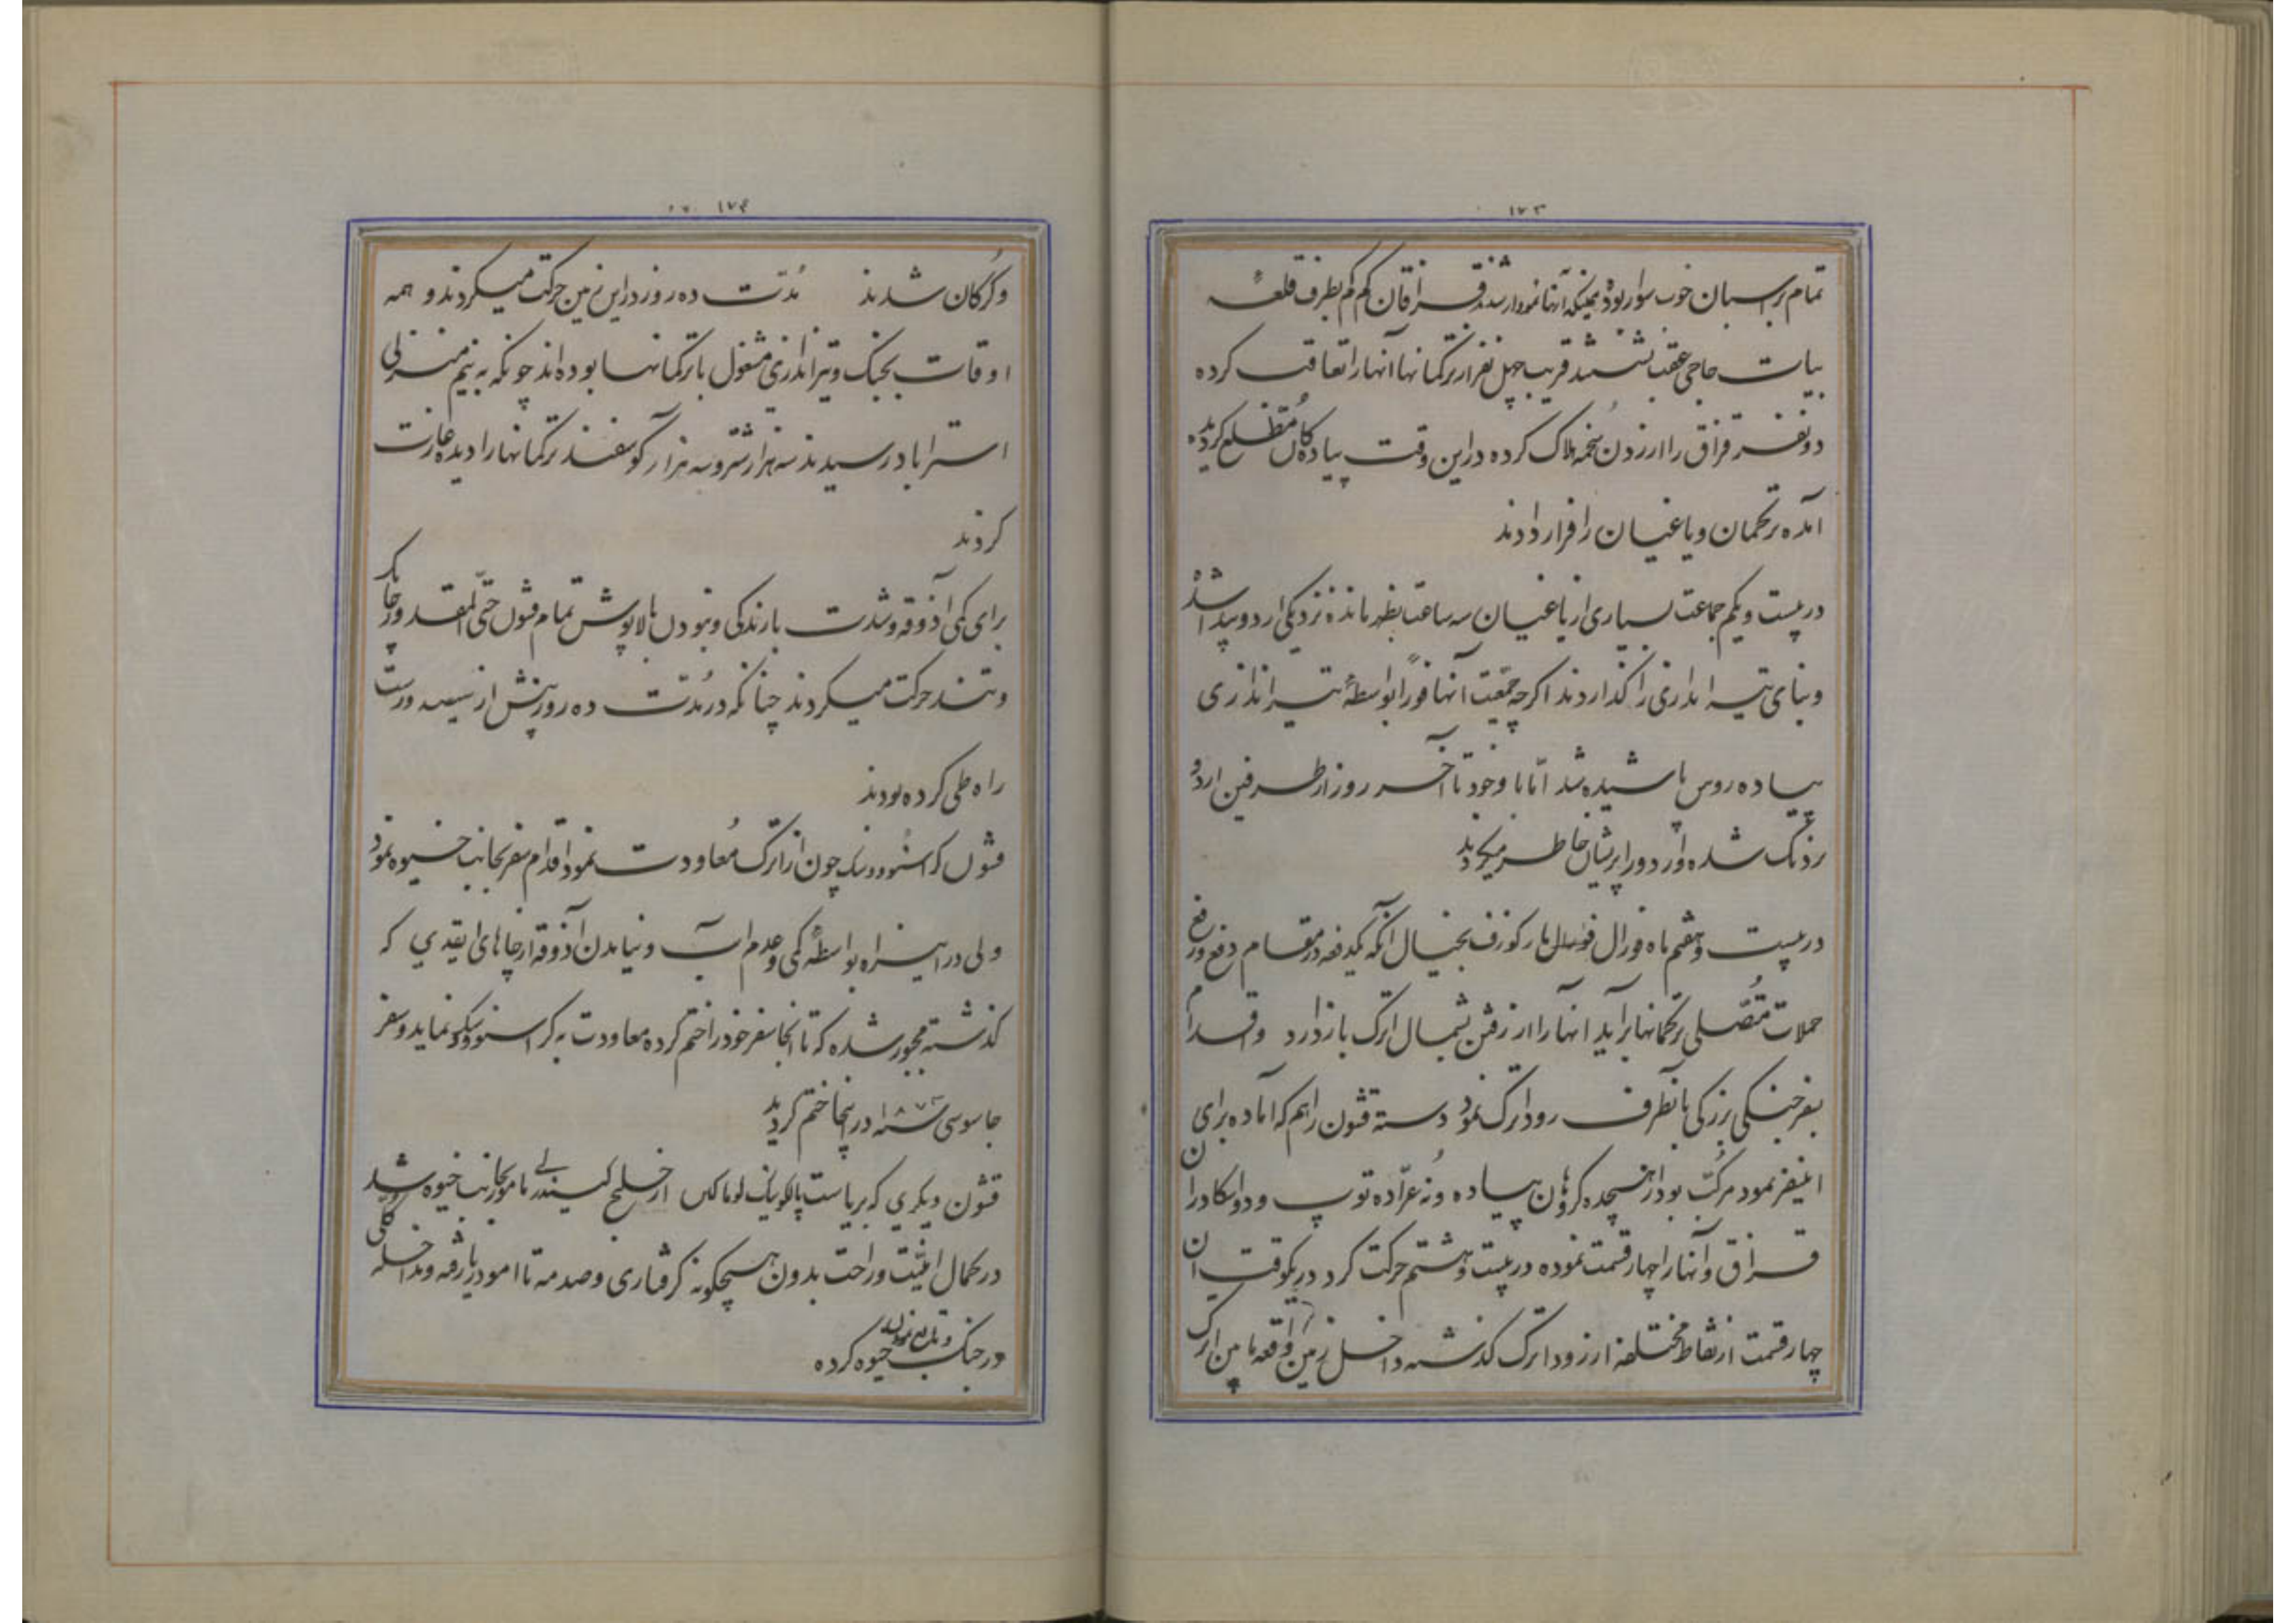 ۱۷۳
تمام بر اسبان خوب سوار بوده همینکه آنها نمودار شدند قزاقان کم کم بطرف قلعهٔ
بیات حاجی عقب نشستند قریب چهل نفر از ترکمانها آنها را تعاقب کرده
دو نفر قزاق را از زدن زخم هلاک کرده در این وقت پیادگان مطلع گردیده
آمده ترکمان و یاغیان را فرار دادند
در بیست و یکم جماعت بسیاری از یاغیان سه ساعت بظهر مانده نزدیکی اردو پیدا شد
و بنای تیر اندازی را گذاردند اگر چه جمعیت آنها فوراً بواسطهٔ تیر اندازی
پیاده روس پاشیده شد اما با وجود تا آخر روز از طرفین اردو
نزدیک شده و اردو را پریشان خاطر میکردند
در بیست و هفتم ماه فورال مارکوزف بخیال آنکه یکدفعه در مقام دفع و رفع
حملات متصلی ترکمانها برآید آنها را از رفتن بشمال اترک باز دارد و اقدام
بسفر جنگی بزرگی بآنطرف رود اترک نمود دسته قشون را هم که آماده برای
اینسفر نمود مرکب بود از هیجده گروهان پیاده و نه عراده توپ و دو اسکادران
قزاق و آنها را چهار قسمت نموده در بیست و هشتم حرکت کرد در یکوقت این
چهار قسمت از نقاط مختلفه از رود اترک گذشته داخل زمین واقعه ما بین اترک
۱۷۴
و گرگان شدند مُدّت ده روز در این زمین حرکت میکردند و همه
اوقات بجنگ و تیر اندازی مشغول با ترکمانها بوده‌اند چونکه به نیم منزلی
استراباد رسیدند سه هزار شتر و سه هزار گوسفند ترکمانها را دیده غارت
کردند
برای کمی آذوقه و شدت بارندگی و نبودن بالاپوش تمام قشون حتی المقدور چابک
و تند حرکت میکردند چنانکه در مُدّت ده روز بیش از سیصد ورست
راه طی کرده بودند
قشون کراسنوودسک چون از اترک مُعاودت نمود اقدام سفر بجانب خیوه نمود
ولی در این راه بواسطهٔ کمی و عدم آب و نیامدن آذوقه از جاهای ابقدی که
گذشته مجبور شده که تا انجا سفر خود را ختم کرده معاودت به کراسنوودسک نماید و سفر
جاسوسی سنه ۱۸۷۲ در اینجا ختم گردید
قشون دیگری که بریاست پالکونیک لوماکن از خلیج کیندرلی مامور بجانب خیوه شد
در کمال امنیت و راحت بدون هیچگونه گرفتاری و صدمه تا امودریا رفته و مداخله کلی
در جنگ و تابع نمودن خیوه کرده